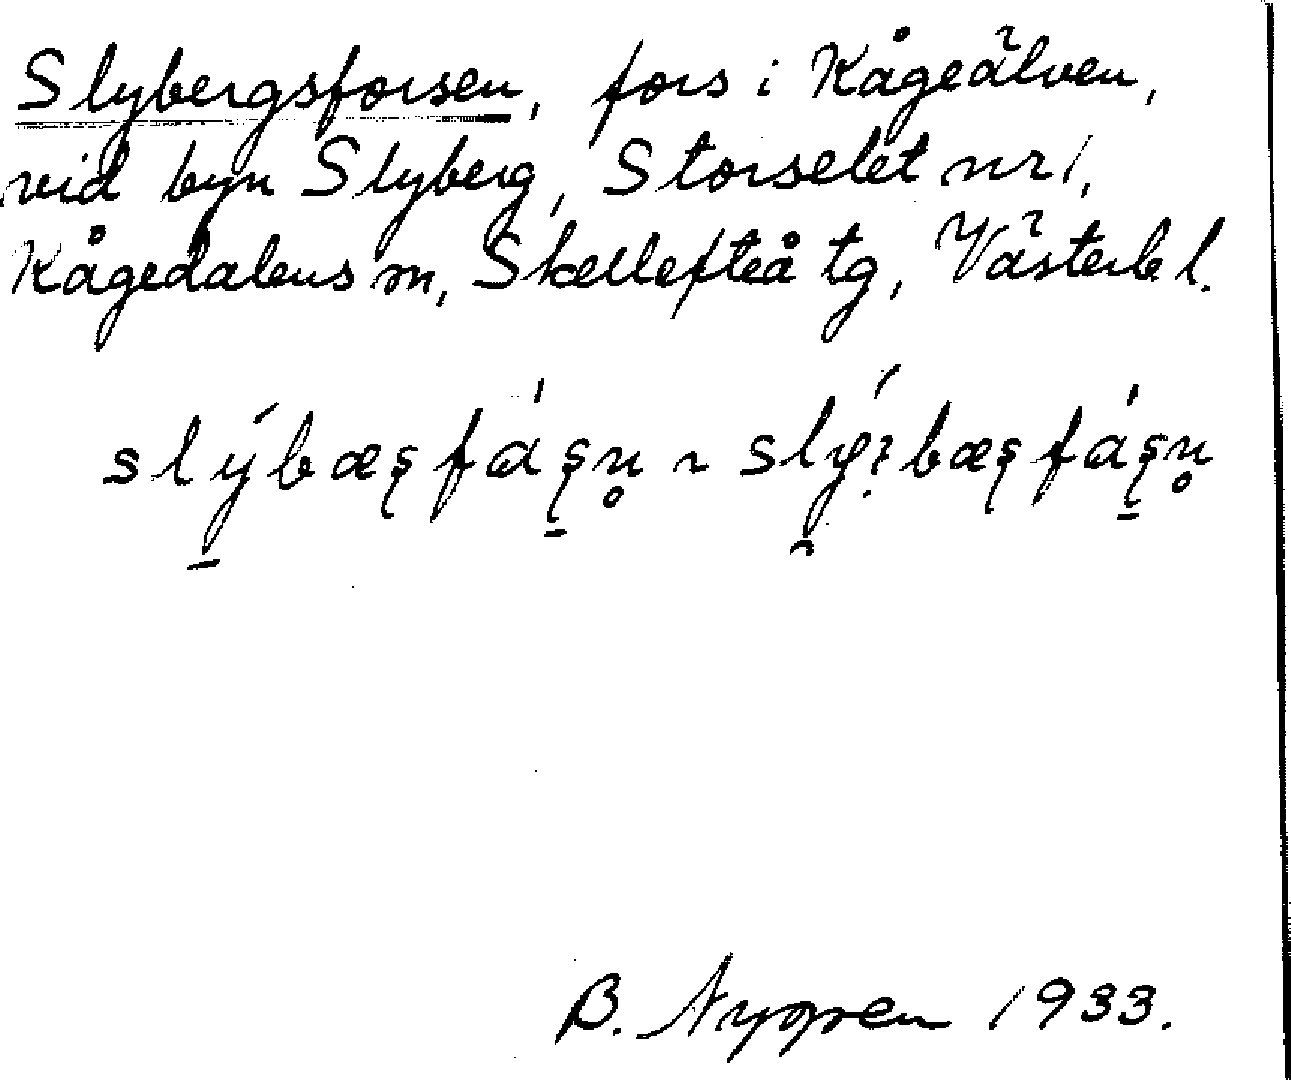 Slybergsforsen, fors i Kågeälven,
vid byn Slyberg, Storselet nr 1,
Kågedalens m, Skellefteå tg, Västerb l.
B. Nygren 1933.